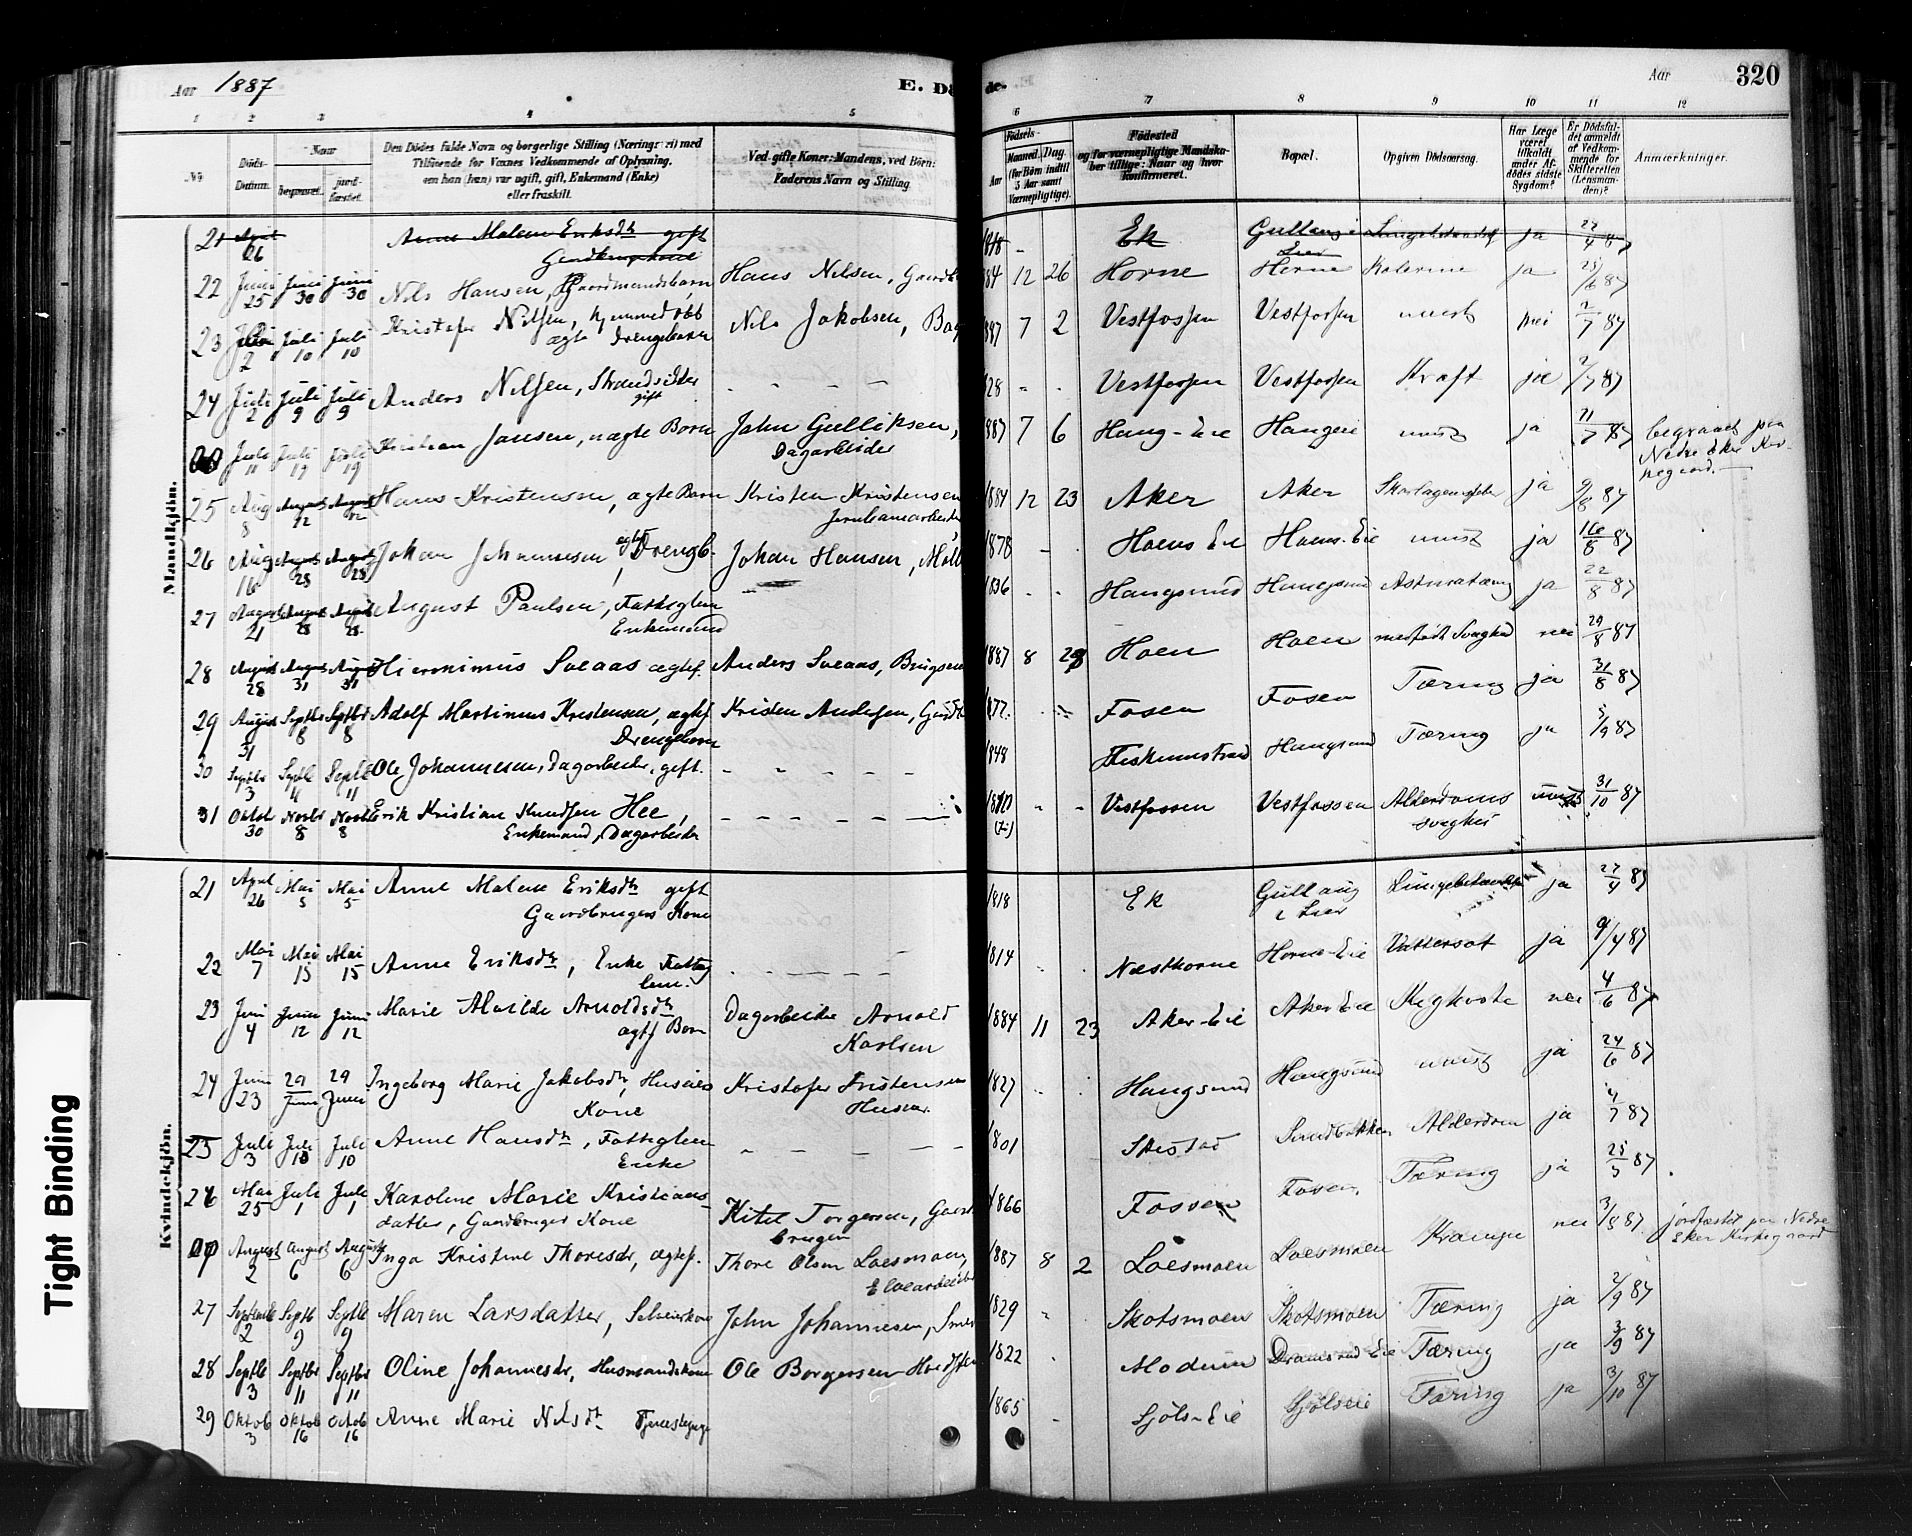 Aar 1887
E. Dø
de.
Aar
320
1 2 3 4 5 6 7 8 9 10 11 12
No.
Døds-Datum.
Naar
begravet.
jord-fæstet.
Den Dødes fulde Navn og borgerlige Stilling (Nærings ei) med
Tilføiende for Voxnes Vedkommende af Oplysning,
om han (hun) var ugift, gift, Enkemand (Enke)
eller fraskilt.
Ved gifte Koner: Mandens, ved Børn:
Faderens Navn og Stilling
Fødsels-
Aar
Maaned. Dag.
(for Børn indtil
5 Aar samt
Værnepligtige).
Fødested
og for værnepligtige Mandskaber tillige: Naar og hvor
konfirmeret.
Bopæl.
Opgiven Dødsaarsag.
Har Læge
været
tilkaldt
under Afdødes sidste
Sygdom?
Er Dødsfaldet anmeldt
af Vedkommende for
Skifteretten
(Lensmanden)?
Anmærkninger.
Mandkjøn.
21 April 26 Anne Malene Eriksdtr gift Ek Gullaug i Lier ja 27/4 87
22 Juni 25 Juni 30 Juni 30 Nils Hansen, Gaardmandsbarn Hans Nilsen, Gaardb 884 12 26 Horne Horne ja 25/6 87
23 Juli 2 Juli 10 Juli 10 Kristofer Nilsen, hjemmedøbt ægte Drengebarn Nils Jakobsen, Bag 887 7 2 Vestfossen Vestfossen nei 2/7 87
24 Juli 2 Juli 9 Juli 9 Anders Nilsen, Strandsidder gift 828 Vestfossen Vestfossen Kræft ja 2/7 87
Juli 11 Juli 17 Juli 19 Kristian Jansen, uægte Barn John Gulliksen, Dagarbeider 887 7 6 Haug-Eie Haugeie ja 11/7 87 begravet paa Nedre Eker Kirkegaard.
25 Aug 8 August 12 August 12 Hans Kristensen, ægte Barn Kristen Kristensen 1884 12 23 Aker Aker Skarlagensfeber ja 9/8 87
26 Aug 16 August 28 August 28 Johan Johannesen, ægte Drengeb. Johan Hansen, Møll 1878 Hoens Eie Hoens-Eie ja 16/8 87
27 August 21 August 28 August 28 August Paulsen, Fattiglem Enkemand 1836 Haugsund Haugsund ja 22/8 87
28 August 28 August 31 August 31 Hieronimus Svaas ægtef. Anders Svaas, Brugsen 1887 8 28 Hoen Hoen medfødt Svaghed nei 29/8 87
29 August 31 Septbr 8 Septbr 8 Adolf Martinus Kristensen, ægtef. Drengebarn Kristen Andersen, Gaardb 1877 Fosen Fosen Tæring ja 31/8 87
30 Septbr 3 Septb 11 Septb 11 Ole Johannesen, Dagarbeider, gift. 1848 Fiskumstrand Haugsund Tæring ja 5/9 87
31 Oktob 30 Novbr 8 Novbr 8 Erik Kristian Knudsen Hee, Enkemand, Dagarbeider Vestfossen Vestfossen Alderdoms svaghed 31/10 87
Kvindekjøn.
21 April 26 Mai 5 Mai 5 Anne Malene Eriksdtr gift Gaardbrugers Kone 1818 Ek Gullaug i Lier Lungebetændelse ja 27/4 87
22 Mai 7 Mai 15 Mai 15 Anne Eriksdtr, Enke Fattig lem. 1814 Næsthorne Horne-Eie Vattersot ja 9/4 87
23 Juni 4 Juni 12 Juni 12 Marie Matilde Arnoldsdtr ægtf Barn Dagarbeider Arnold Karlsen 1884 11 23 Aker-Eie Aker Eie Kighoste nei 4/6 87
24 Juni 23 29 Juni 29 Juni Ingeborg Marie Jakobsdtr, Huseiers Kone Kristofer Kristensen Huseier 1827 Haugsund Haugsund ja 24/6 87
25 Juli 3 Juli 10 Juli 10 Anne Hansdtr, Fattiglem Enke 1801 Skistad Sandbakken Alderdom ja 4/7 87
26 Mai 25 Juli 1 Juli 1 Karoline Marie Kristians- datter, Gaardbruger Kone Kitel Torgersen, Gaard brugen 1866 Fossen Fosen. Tæring ja 25/5 87
August 2 August 6 August 6 Inga Kristine Thoresdtr, ægtef. Thore Olsen Loesmoen, 1887 8 2 Loesmoen Loesmoen Krampe nei 3/8 87. jordfæstet paa Nedre Eker Kirkegaard
27 Septembr 2 Septb 9 Septb 9 Maren Larsdatter, John Johannesen, Smed 1829 Skotsmoen Skotsmoen Tæring ja 2/9 87
28 Septb 3 Septbr 11 Septbr 11 Oline Johannesdtr, Husmandskone Ole Borgersen 1822 Modum Dramsrud Eie Tæring ja 3/9 87
29 Oktob 3 Oktob 16 Octob 16 Anne Marie Nilsdtr Tjenestepige 1865 Sjöls-Eie Sjölseie Tæring ja 3/10 87
Tight Binding